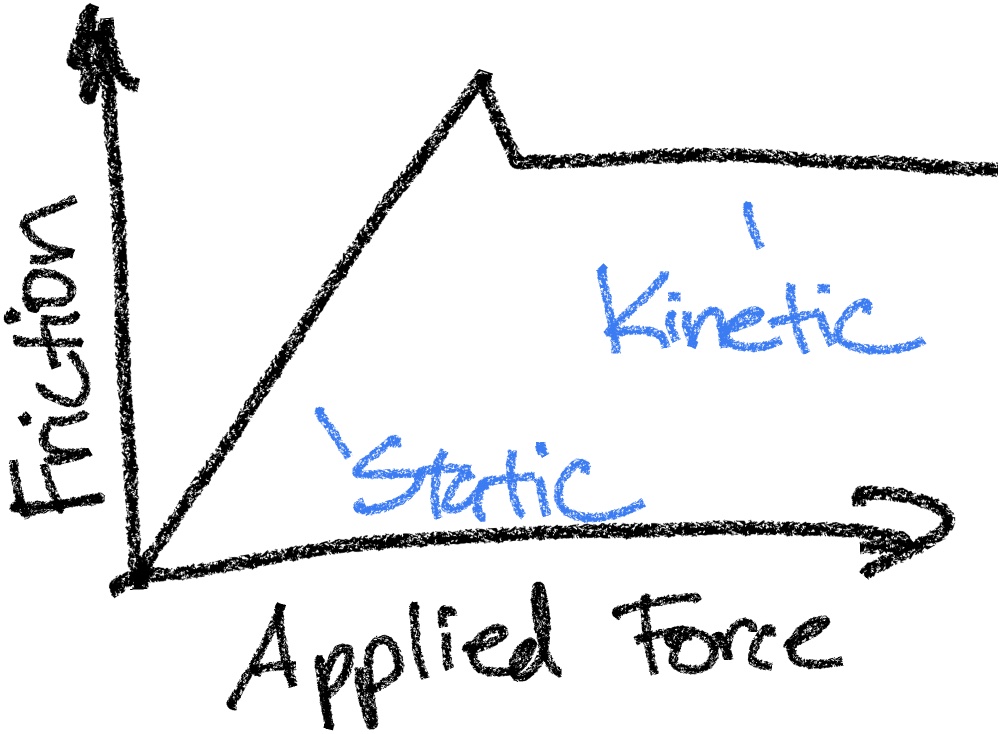 Friction
Kinetic
Static
Applied Force